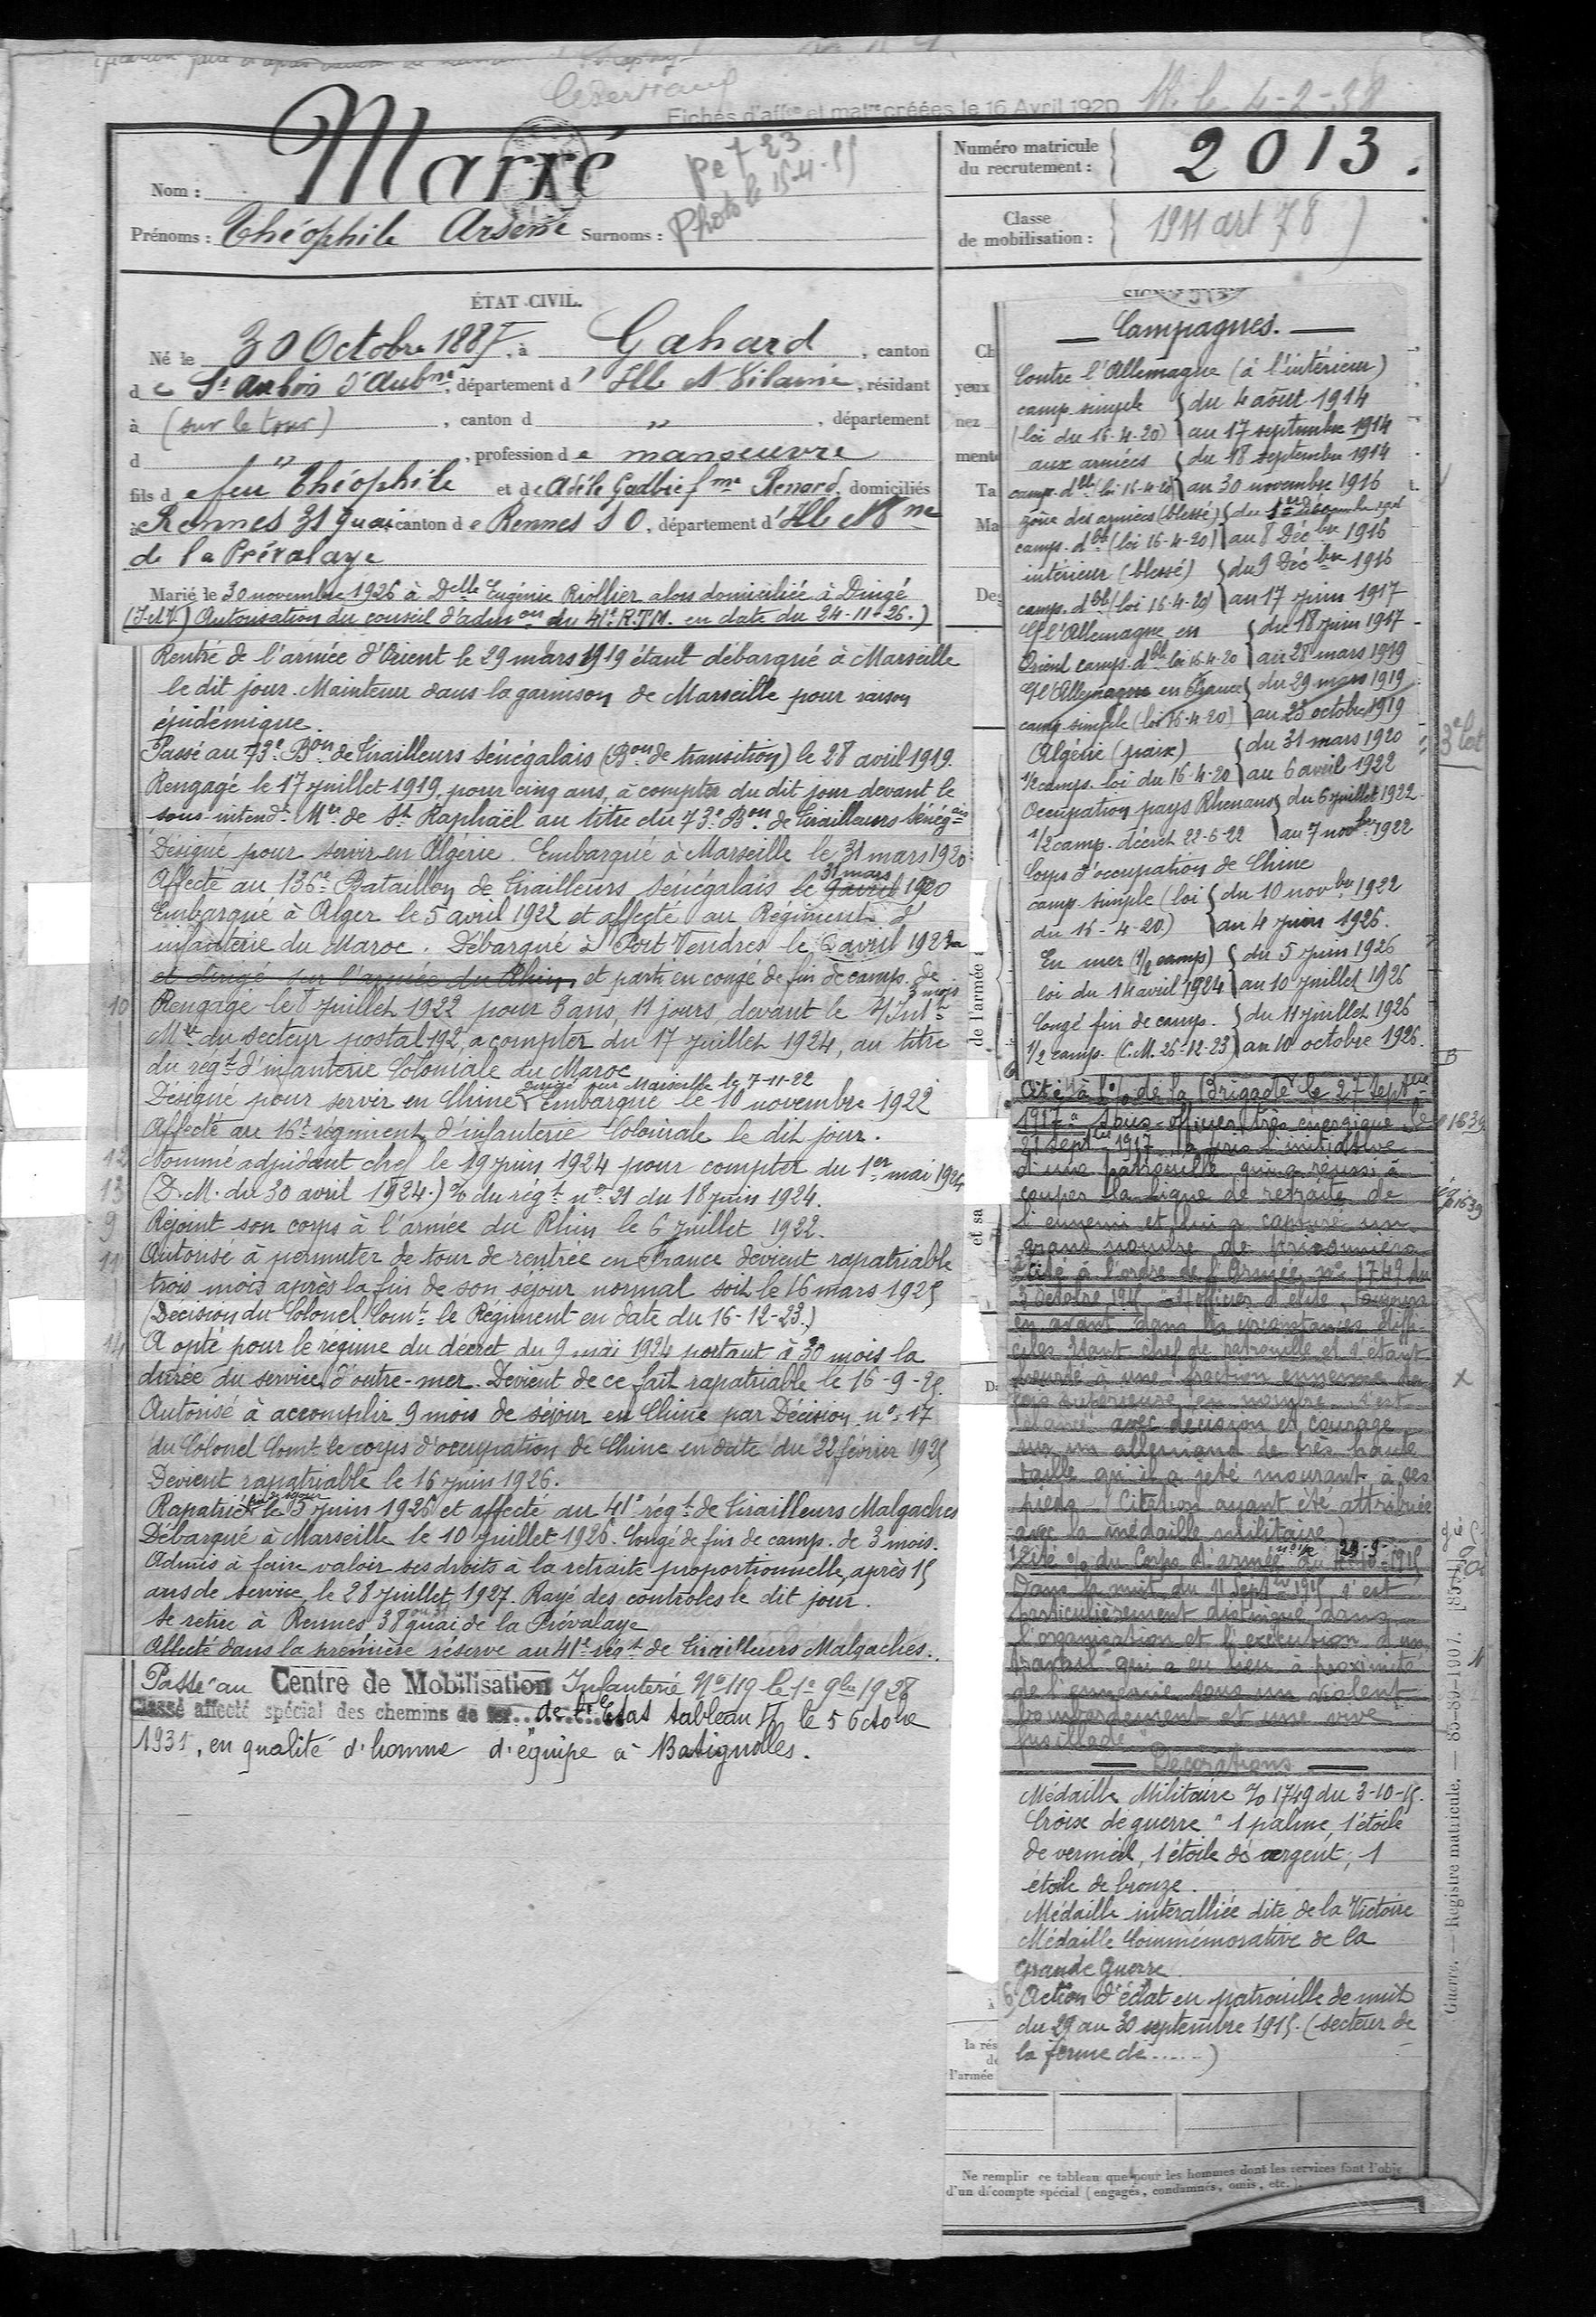 Fiches d'aff^on et mat^re créées le 16 Avril 1920
N. le 4-2-38
Nom : Marré
pe 7 23
Photo le 15-4-55
Prénoms : Théophile Arsène Surnoms :
Numéro matricule du recrutement : 2013.
Classe de mobilisation : 1911 art 78
ÉTAT CIVIL.
Né le 30 Octobre 1887, à Gahard, canton
de St Aubin d'Aub^né, département d'Ille et Vilaine, résidant
à (sur le tour), canton d " , département
d " , profession de manœuvre
fils de feu Théophile et de Adèle Gadbief^me Renard, domiciliés
à Rennes 31 quai canton de Rennes S O, département d'Ille et V^ne
de la Prévalaye
Marié le 30 novembre 1926 à D^elle Eugénie Riollier alors domiciliée à Dingé
(I-et-V.) Autorisation du conseil d'adm^on du 41^e R.T.M. en date du 24-11-26.)
Rentré de l'armée d'Orient le 29 mars 1919 étant débarqué à Marseille
le dit jour. Maintenu dans la garnison de Marseille pour raison
épidémique.
Passé au 73^e B^on de Tirailleurs Sénégalais (B^on de transition) le 28 avril 1919.
Rengagé le 17 juillet 1919, pour cinq ans, à compter du dit jour devant le
sous-intend^t M^re de St Raphaël au titre du 73^e B^on de Tirailleurs Sénég^ais
Désigné pour servir en Algérie. Embarqué à Marseille le 31 mars 1920
31 mars
Affecté au 136^e Bataillon de Tirailleurs Sénégalais le 9 avril 1920
Embarqué à Alger le 5 avril 1922 et affecté au Régiment d'
infanterie du Maroc. Débarqué à Port Vendres le 6 avril 1922
et dirigé sur l'armée du Rhin et parti en congé de fin de camp. de
3 mois
10 Rengagé le 8 juillet 1922 pour 3 ans, 11 jours devant le s/Int^t
M^re du secteur postal 192, à compter du 17 juillet 1924, au titre
du rég^t d'infanterie Coloniale du Maroc
dirigé sur Marseille le 7-11-22
Désigné pour servir en Chine Embarqué le 10 novembre 1922
Affecté au 16^e régiment d'infanterie Coloniale le dit jour.
12 Nommé adjudant chef le 19 juin 1924 pour compter du 1^er mai 1924
13 (D.M. du 30 avril 1924.) % du rég^t n° 21 du 18 juin 1924.
9 Rejoint son corps à l'armée du Rhin le 6 juillet 1922.
11 Autorisé à permuter de tour de rentrée en France devient rapatriable
trois mois après la fin de son séjour normal soit le 16 mars 1925
(Décision du Colonel Com^t le Régiment en date du 16-12-23.)
14 A opté pour le régime du décret du 9 mai 1924 portant à 30 mois la
durée du service d'outre-mer. Devient de ce fait rapatriable le 16-9-25.
Autorisé à accomplir 9 mois de séjour en Chine par Décision n° 17
du Colonel Com^t le corps d'occupation de Chine en date du 22 février 1925
Devient rapatriable le 16 juin 1926.
Rapatrié le 5 juin 1926 et affecté au 41^e rég^t de Tirailleurs Malgaches
Débarqué à Marseille le 10 juillet 1926. Congé de fin de camp. de 3 mois.
Admis à faire valoir ses droits à la retraite proportionnelle, après 15
ans de service, le 28 juillet 1927. Rayé des contrôles le dit jour.
Se retire à Rennes 38 quai de la Prévalaye
Affecté dans la première réserve au 41^e rég^t de Tirailleurs Malgaches.
Passé au Centre de Mobilisation Infanterie N° 119 le 1^e 9bre 1928
Classé affecté spécial des chemins de fer de l'Etat tableau le 5 Octobre
1931, en qualité d'homme d'équipe à Batignolles.
Campagnes.
Contre l'Allemagne (à l'intérieur)
camp. simple { du 4 août 1914
(loi du 16-4-20) au 17 septembre 1914
aux armées { du 18 septembre 1914
camp. d^ble (loi 16-4-20) au 30 novembre 1916
zone des armées (blessé) { du 1^er décembre 1916
camp. d^ble (loi 16-4-20) au 8 Déc^bre 1916
intérieur (blessé) { du 9 Déc^bre 1916
camp. d^ble (loi 16-4-20) au 17 juin 1917
C/ l'Allemagne en { du 18 juin 1917
Orient camp. d^ble loi 16-4-20 au 28 mars 1919
C/ l'Allemagne en France { du 29 mars 1919
camp. simple (loi 16-4-20) au 23 octobre 1919
Algérie (paix) { du 31 mars 1920
1/2 camp. loi du 16-4-20 au 6 avril 1922
Occupation pays Rhénans { du 6 juillet 1922
1/2 camp. décret 22-6-22 au 7 nov^bre 1922
Corps d'occupation de Chine
camp. simple (loi { du 10 nov^bre 1922
du 16-4-20) au 4 juin 1926.
En mer (1/2 camp) { du 5 juin 1926
loi du 14 avril 1924 au 10 juillet 1926
Congé fin de camp. { du 11 juillet 1926
1/2 camp. (C.M. 26-12-23) au 10 octobre 1926.
3^e lot
Cité à l'% de la Brigade le 27 sept^bre
1917 "Sous-officier très énergique. Le
21 sept^bre 1917 a pris l'initiative
d'une patrouille qui a réussi à
couper la ligne de retraite de
l'ennemi et lui a capturé un
grand nombre de prisonniers
Cité à l'ordre de l'Armée n° 1749 du
3 octobre 1915 S/officier d'élite, toujours
en avant dans les circonstances diffi-
ciles. Etant chef de patrouille et s'étant
heurté à une fraction ennemie
supérieure en nombre s'est
élancé avec décision et courage
sur un allemand de très haute
taille qu'il a jeté mourant à ses
pieds. (Citation ayant été attribuée
avec la médaille militaire)
Cité % du Corps d'armée
29-9-1915
Dans la nuit du 11 Sept^bre 1915 s'est
particulièrement distingué dans
l'organisation et l'exécution d'un
travail qui a eu lieu à proximité
de l'ennemi sous un violent
bombardement et une vive
fusillade
Décorations
Médaille Militaire % 1749 du 3-10-15.
Croix de guerre " 1 palme, 1 étoile
de vermeil, 1 étoile de argent, 1
étoile de bronze.
Médaille interalliée dite de la Victoire
Médaille Commémorative de la
Grande Guerre
Action d'éclat en patrouille de nuit
du 29 au 30 septembre 1915. (secteur de
la ferme de ......)
Ne remplir ce tableau que pour les hommes dont les services font l'obje
d'un décompte spécial (engagés, condamnés, omis, etc.).
de l'armée
et sa
Guerre. — Registre matricule. —